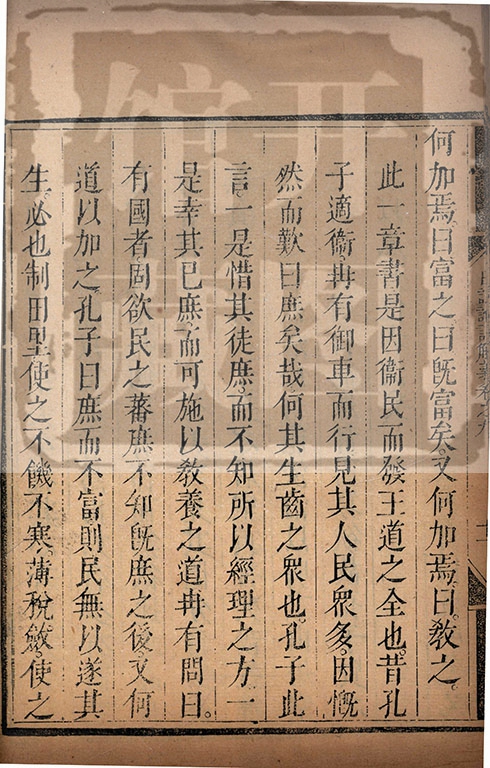 何加焉曰富之曰旣富矣又何加焉曰教之
此一章書是因衞民而發王道之全也昔孔
子適衞冉有御車而行見其人民眾多因慨
然而歎曰庶矣哉何其生齒之眾也孔子此
言一是惜其徒庶而不知所以經理之方一
是幸其已庶而可施以教養之道冉有問曰
有國者固欲民之蕃庶不知旣庶之後又何
道以加之孔子曰庶而不富則民無以遂其
生必也制田里使之不饑不寒薄稅斂使之